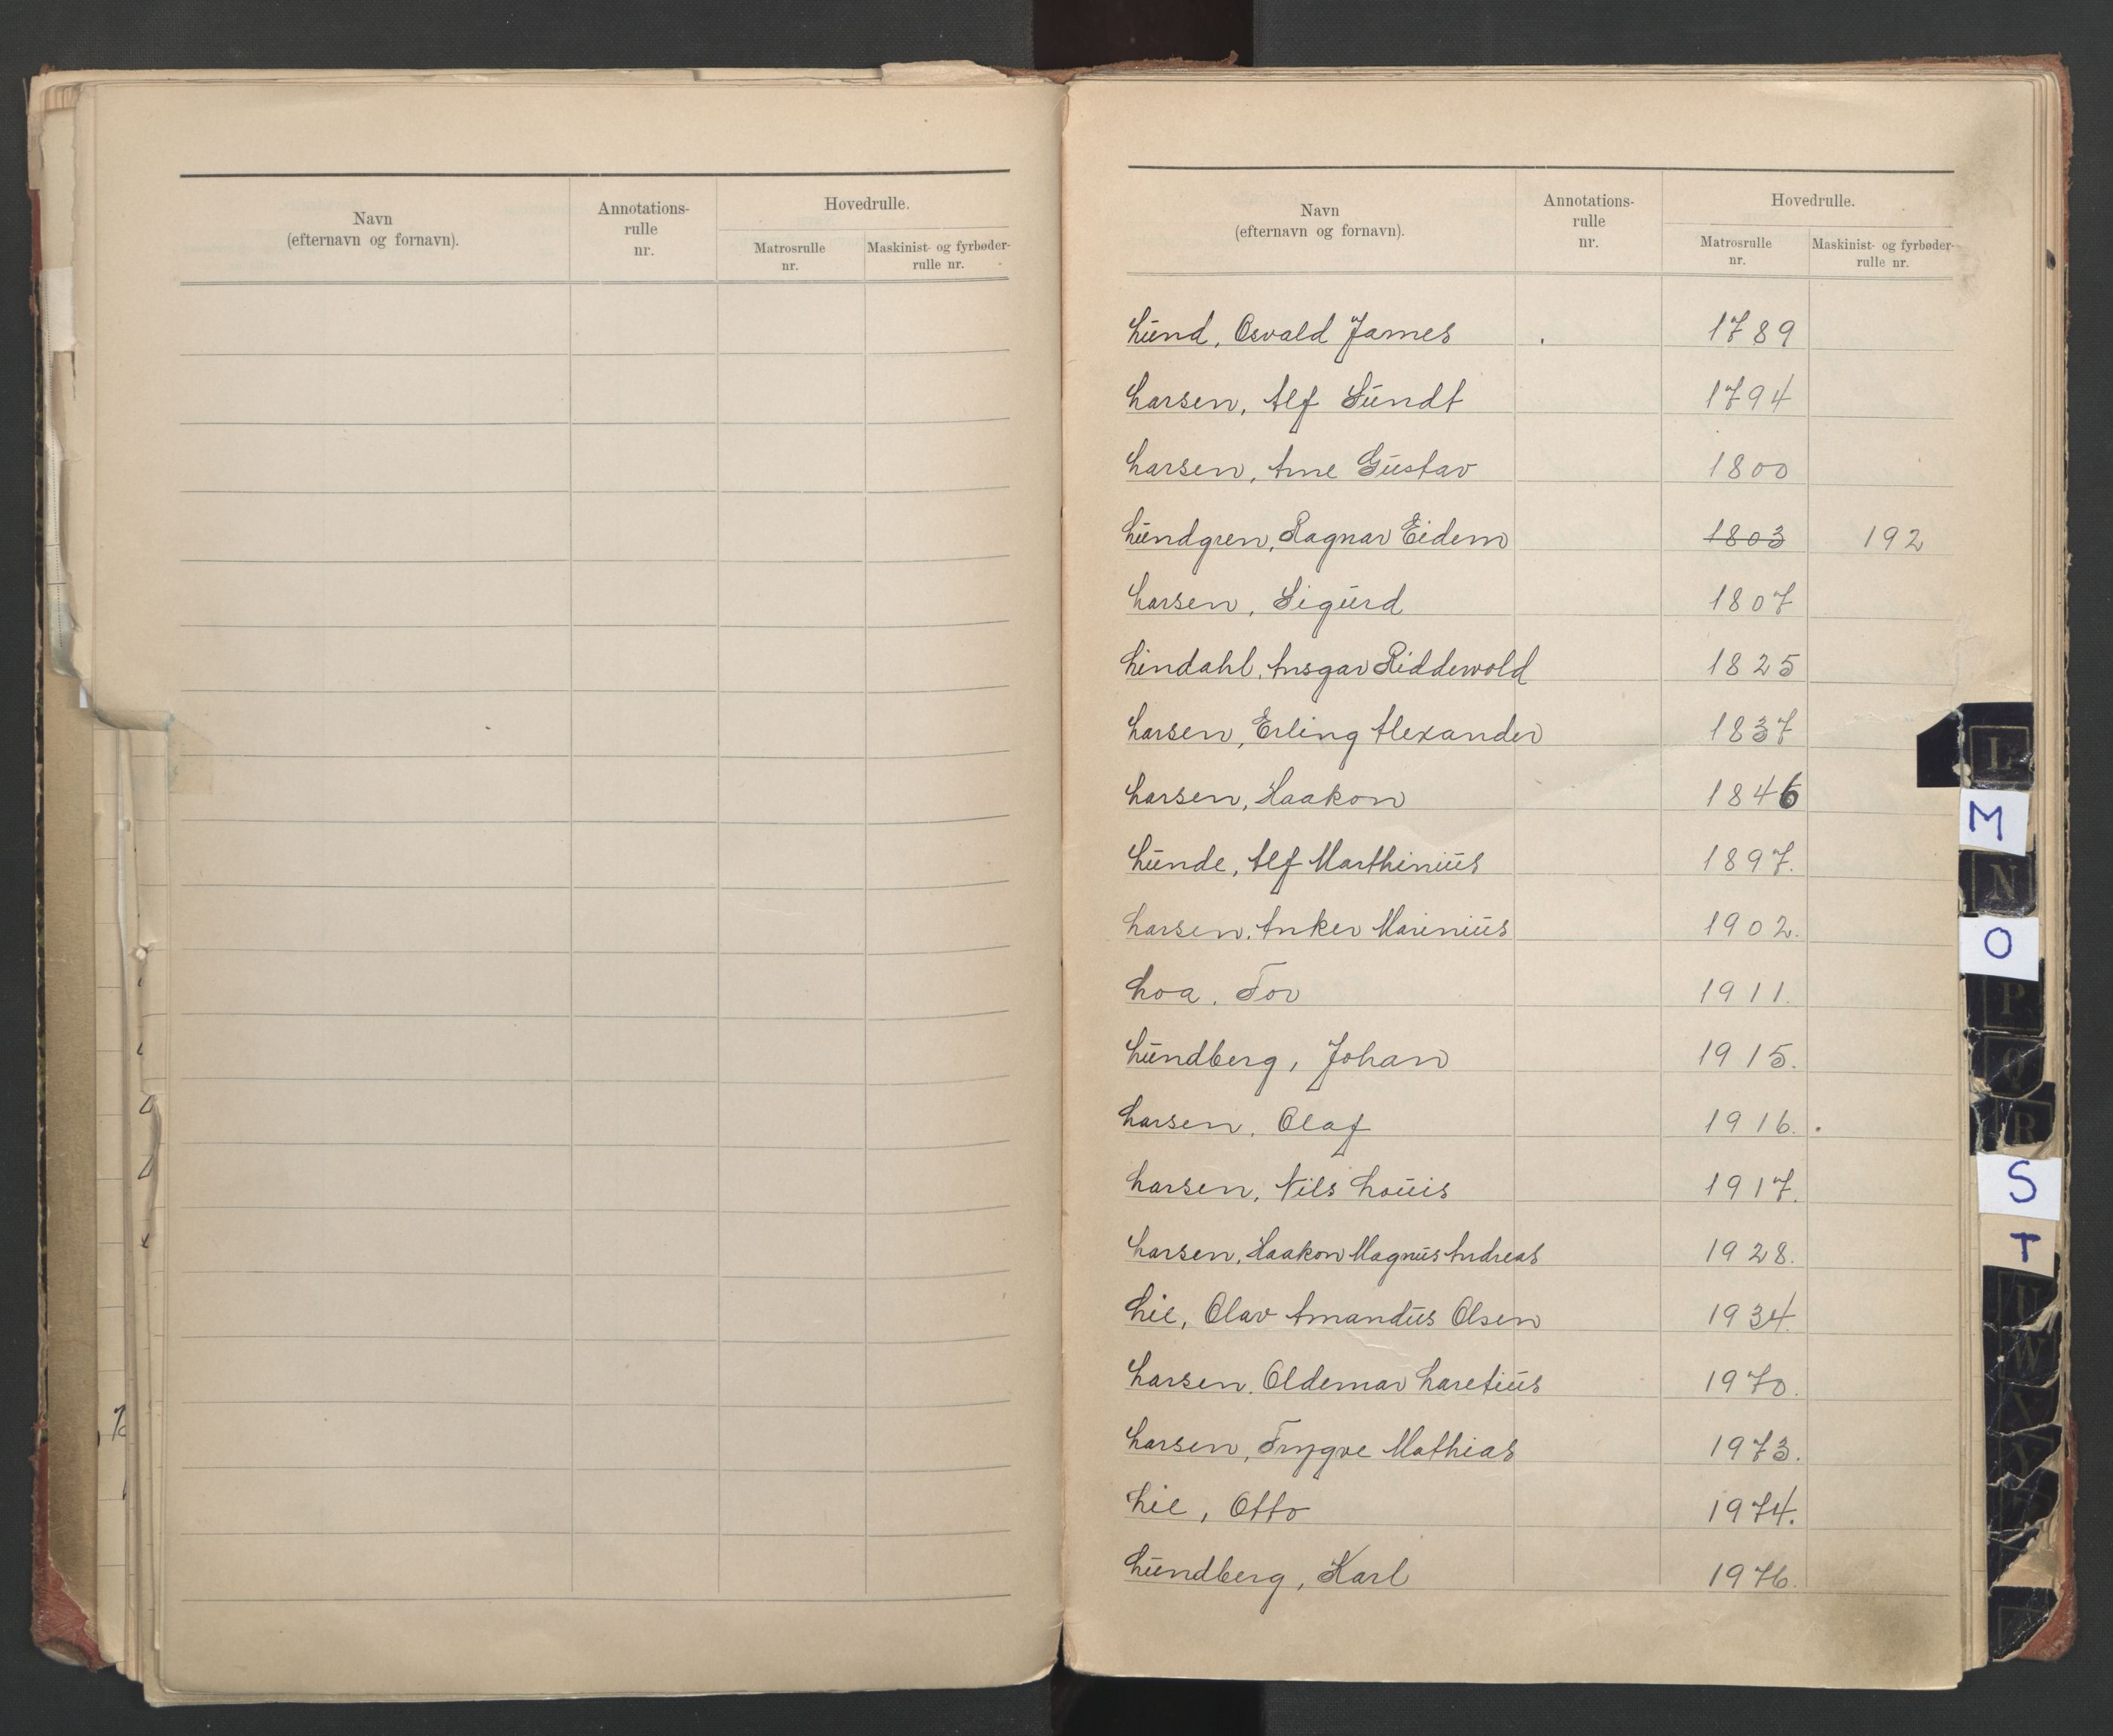 Navn
(efternavn og fornavn).
Annotations-
rulle
nr.
Hovedrulle.
Matrosrulle
nr.
Maskinist- og fyrbøder-
rulle nr.
Navn
(efternavn og fornavn).
Annotations-
rulle
nr.
Hovedrulle.
Matrosrulle
nr.
Maskinist- og fyrbøder-
rulle nr.
Lund, Osvald James 1789
Larsen, Alf Sundt 1794
Larsen, Arne Gustav 1800
Lundgren, Ragnar Eidem 1803 192
Larsen, Sigurd 1807
Lindahl, Ansgar Riddewold 1825
Larsen, Erling Alexander 1837
Larsen, Haakon 1846
Lunde, Alf Marthinius 1897.
Larsen, Anker Marinius 1902.
Loa, Tor 1911.
Lundberg, Johan 1915.
Larsen, Olaf 1916.
Larsen, Nils Louis 1917.
Larsen, Haakon Magnus Andreas 1928.
Lie, Olav Amandus Olsen 1934.
Larsen, Oldemar Laretius 1970.
Larsen, Trygve Mathias 1973.
Lie, Otto 1974.
Lundberg, Karl 1976.
L
M
N
O
P
Q
R
S
T
U
W
X
Y